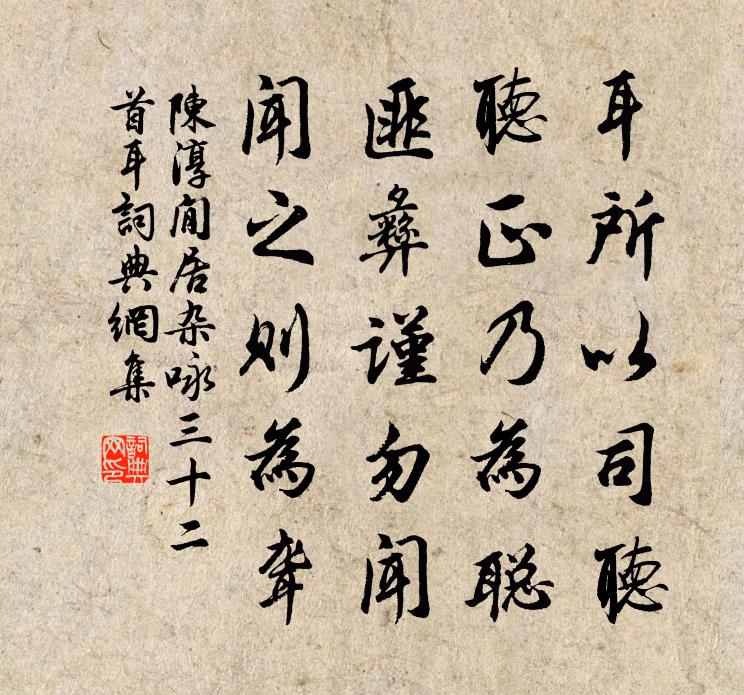 耳所以司聽
聽正乃為聡
匪彝謹勿聞
聞之則為聋
陳淳閒居杂咏三十二
首耳詞典網集
詞典
网印